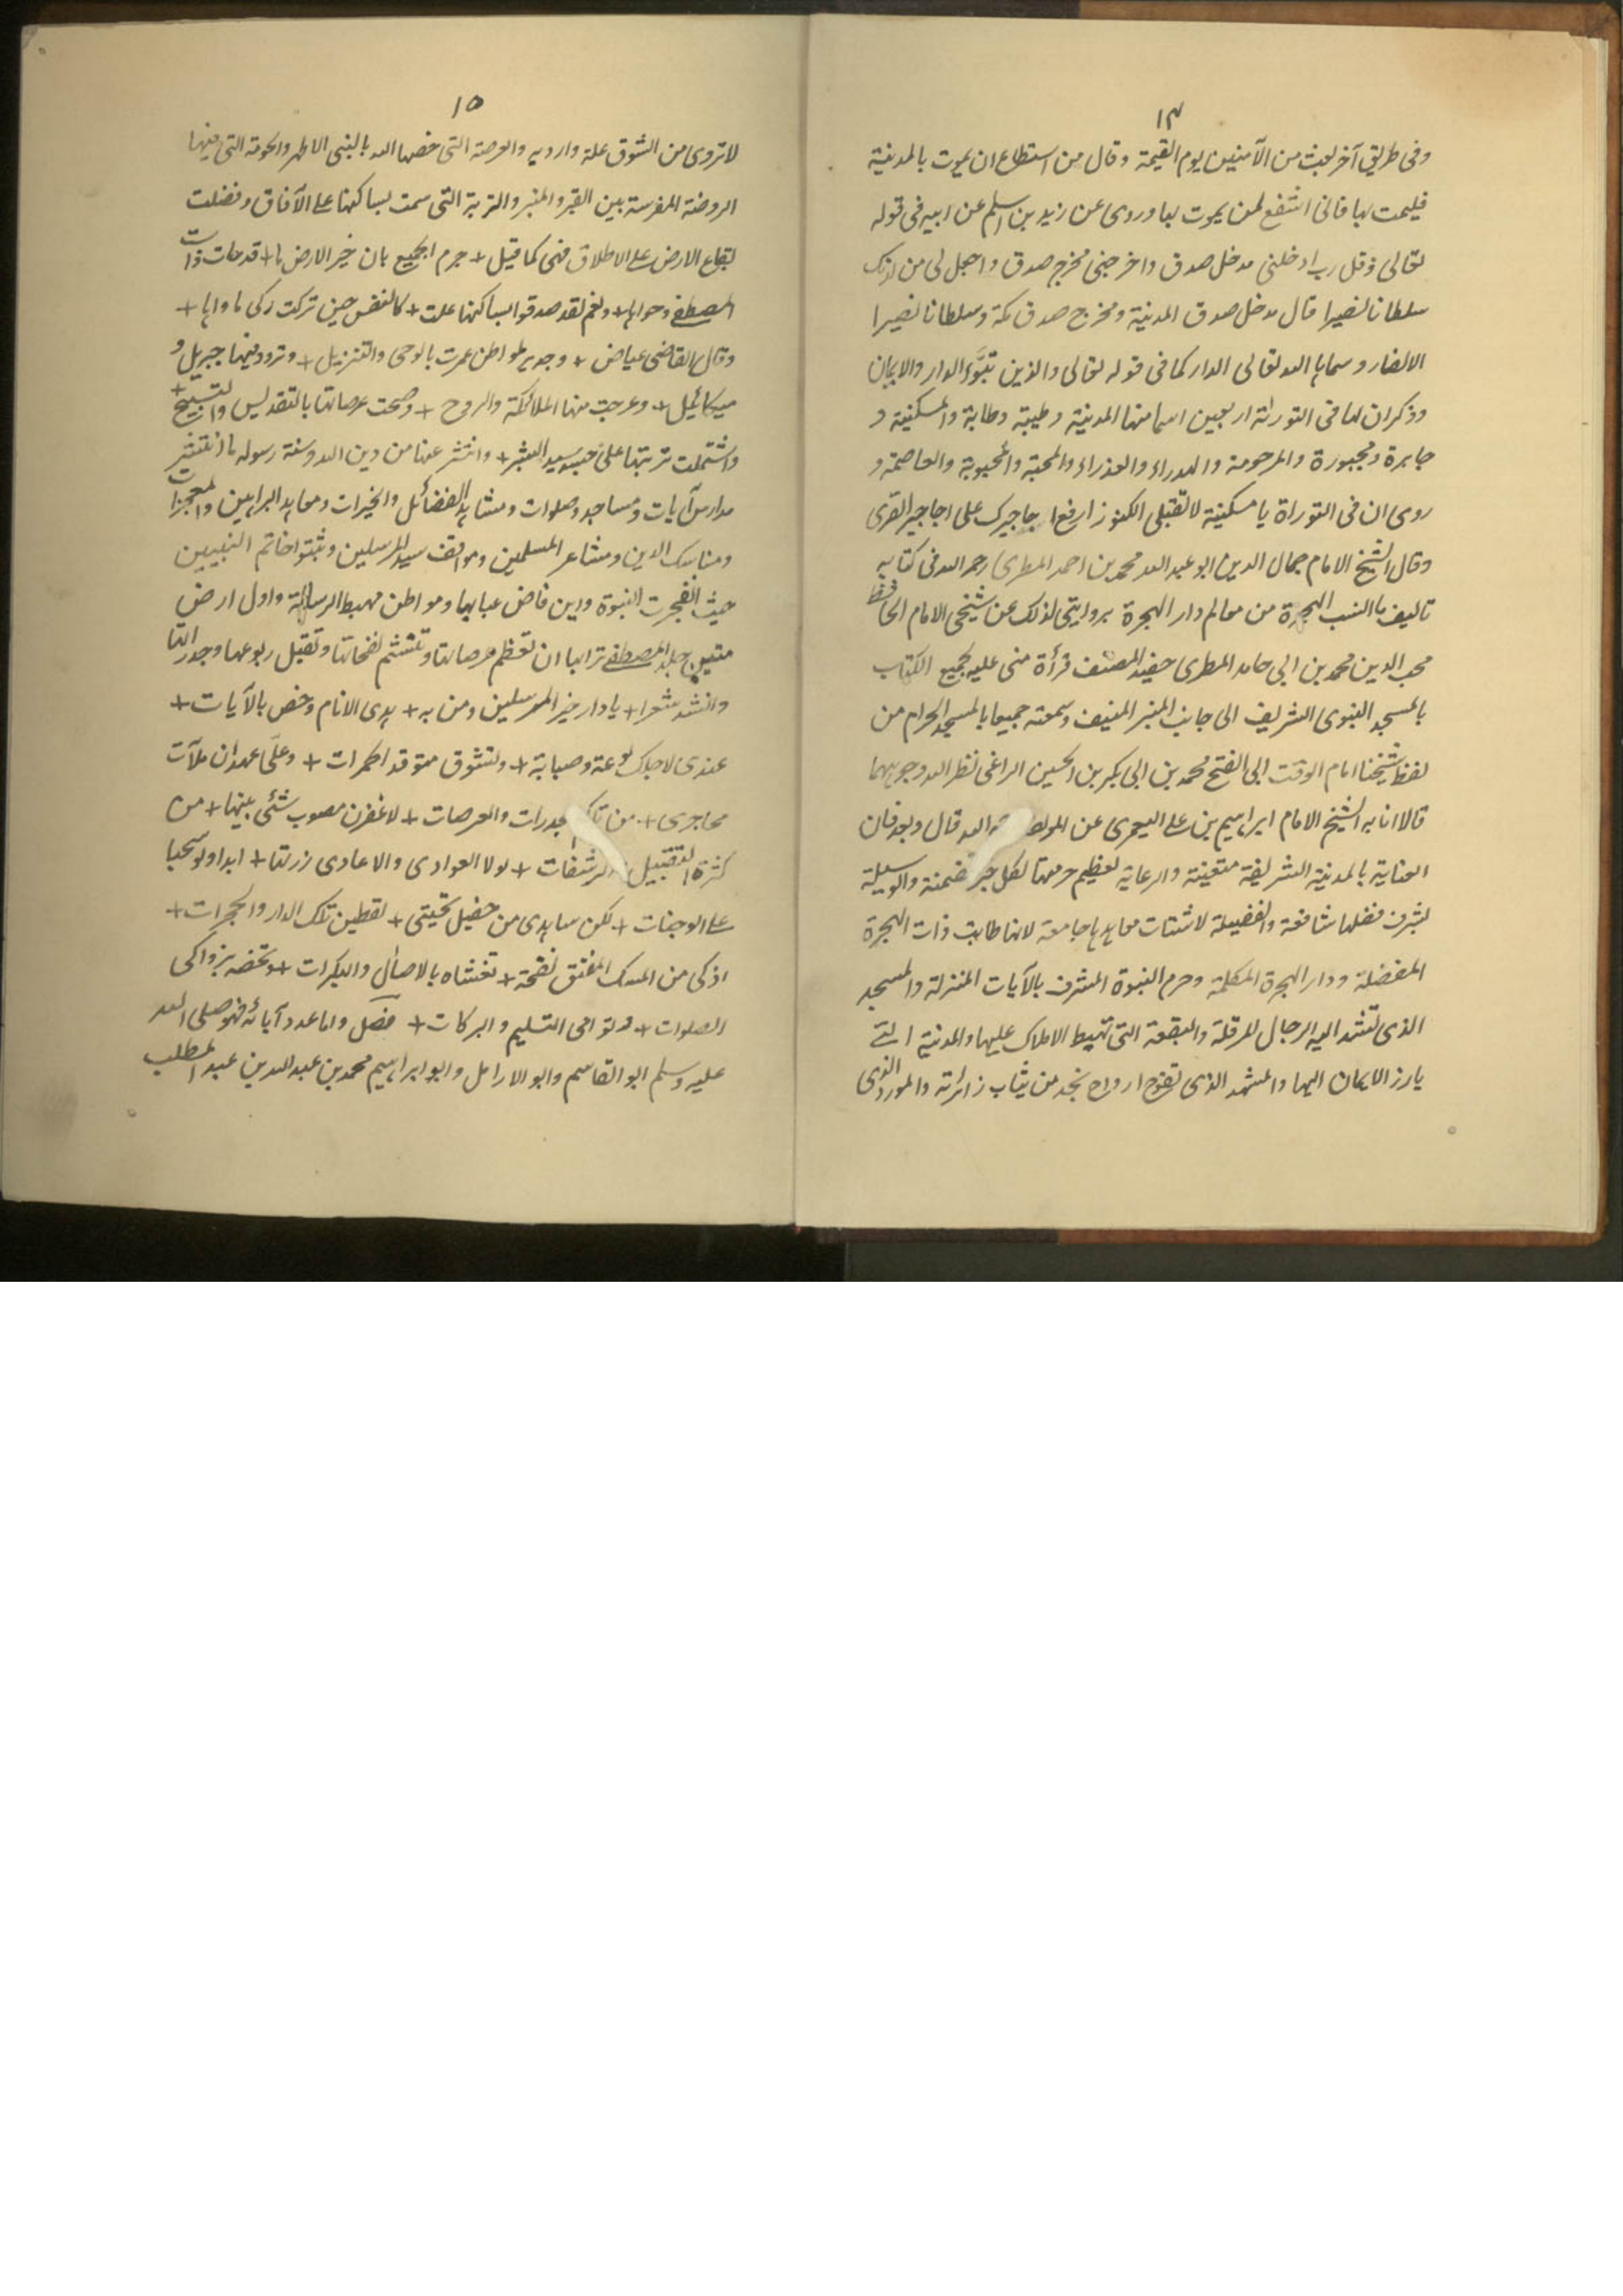 ١٤
وفى طريق آخر بعث من الآمنين يوم القيمة وقال من استطاع ان يموت بالمدينة
فليمت بها فانى اشفع لمن يموت بها وروى عن زيد بن اسلم عن ابيه فى قوله
تعالى وقل رب ادخلنى مدخل صدق واخرجنى مخرج صدق واجعل لى من لدنك
سلطانا نصيرا قال مدخل صدق المدينة ومخرج صدق مكة وسلطانا نصيرا
الانصار وسماها الله تعالى الدار كما فى قوله تعالى والذين تبوّءو الدار والايمان
وذكر ان لها فى التورىٰة اربعين اسما منها المدينة وطيبة وطابة والمسكنية و
جابرة ومجبورة والمرحومة والعذراء والمحبة والمحبوبة والعاصمة و
روى ان فى التوراة يا مسكنية لا تقبلى الكنوز ارفع اجاجيرك على اجاجير القرى
وقال الشيخ الامام جمال الدين ابو عبد الله محمد بن احمد المطرى رحمه الله فى كتابه
تاليف ما انست الهجرة من معالم دار الهجرة بروايتى لذلك عن شيخى الامام الحافظ
محب الدين محمد بن ابى حامد المطرى حفيد المصنف قرأة منى عليه لجميع الكتاب
بالمسجد النبوى الشريف الى جانب المنبر المنيف وسمعته جميعا بالمسجد الحرام من
لفظ شيخنا امام الوقت ابى الفتح محمد بن ابى بكر بن الحسين المراغى نظر الله وجوههما
قالا انا به الشيخ الامام ابراهيم بن على اليعمرى عن المولف الله قال وبعد فان
العناية بالمدينة الشريفة متعينة والرعاية لعظيم حرمتها لكل خير متضمنة والوسيلة
بشرف فضلها شافعة والفضيلة لاشتات معاهدها جامعة لانها طابت ذات الهجرة
المفضلة ودار الهجرة المكملة وحرم النبوة المشرف بالآيات المنزلة والمسجد
الذى تشد اليه الرحال المرقلة والبقعة التى تهبط الاملاك عليها والمدينة التى
يارز الايمان اليها والمشهد الذى تفوح ارواح نجد من ثياب زائرته والمورد الذى
١٥
لا تروى من الشوق غلة وارديه والعرصة التى خصها الله بالنبى الاطهر والحومة التى فيها
الروضة المقدسة بين القبر والمنبر والتربة التى سمت بساكنها على الآفاق وفضلت
بقاع الارض على الاطلاق فهى كما قيل + جزم الجميع بان خير الارض ما + قد حاط ذات
المصطفى وحواها + ونعم لقد صدقوا بساكنها علت + كالنفس حين تركت زكى ماواها +
وقال القاضى عياض + وجدير لمواطن عمرت بالوحى والتنزيل + وتردد فيها جبريل و
ميكائيل + وعرجت منها الملائكة والروح + وضجت عرصاتها بالتقديس والتسبيح +
واشتملت تربتها على جسد سيد البشر + وانتشر عنها من دين الله وسنة رسوله ما انتشر
مدارس آيات ومساجد وصلوات ومشاهد الفضائل والخيرات ومعاهد البراهين والمعجزات
ومناسك الدين ومشاعر المسلمين ومواقف سيد المرسلين ومتبوا خاتم النبيين
حيث انفجرت النبوة واين فاض عبابها ومواطن مهبط الرسالة واول ارض
متيمن جلد المصطفى ترابها ان تعظم عرصاتها وتتنسم نفحاتها وتقبل ربوعها وجدراتها
وانشد شعرا + يا دار خير المرسلين ومن به + هدى الانام وخص بالآيات +
عندى لاجلك لوعة وصبابة + وتشوق متوقد الجمرات + وعلّى عهد ان ملآت
محاجرى + من تلك الجدرات والعرصات + لاغفرن مصون شئى بينها + من
كثرة التقبيل والرشفات + لولا العوادى والاعادى زرتها + ابدا ولو سحبا
على الوجنات + لكن ساهدى من حفيل تحيتى + لقطين تلك الدار والحجرات +
اذكى من المسك المفتق نفحة + تغشاه بالاصٰال والبكرات + وتخصه بزواكى
الصلوات + ونوامى التسليم والبركات + فصل واما عدد آبائه فهو صلى الله
عليه وسلم ابو القاسم وابو الارامل وابو ابراهيم محمد بن عبد الله بن عبد المطلب